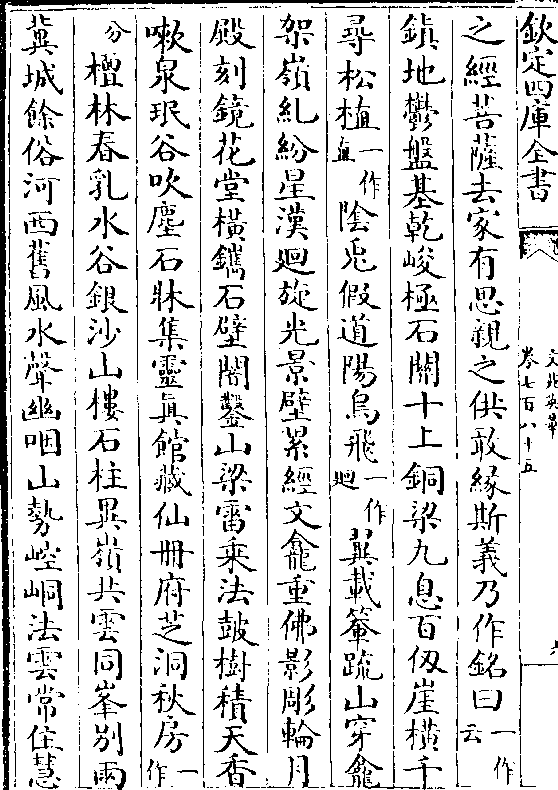 欽定四庫全書
文苑英華
卷七百八十五
之經菩薩去家有思親之供敢緣斯義乃作銘曰一作云
鎮地鬱盤基乾峻極石關十上銅梁九息百仭崖橫千
尋松植一作直陰兎假道陽烏飛一作廻翼載輂疏山穿龕
架嶺糺紛星漢廻旋光景壁累經文龕重佛影雕輪月
殿刻鏡花堂橫鐫石壁闇鑿山梁雷乗法鼓樹積天香
嗽泉珉谷吹塵石牀集靈眞館藏仙冊府芝洞秋房一作
分檀林春乳水谷銀沙山樓石柱異嶺共雲同峯别雨
冀城餘俗河西舊風水聲幽咽山勢崆峒法雲常住慧